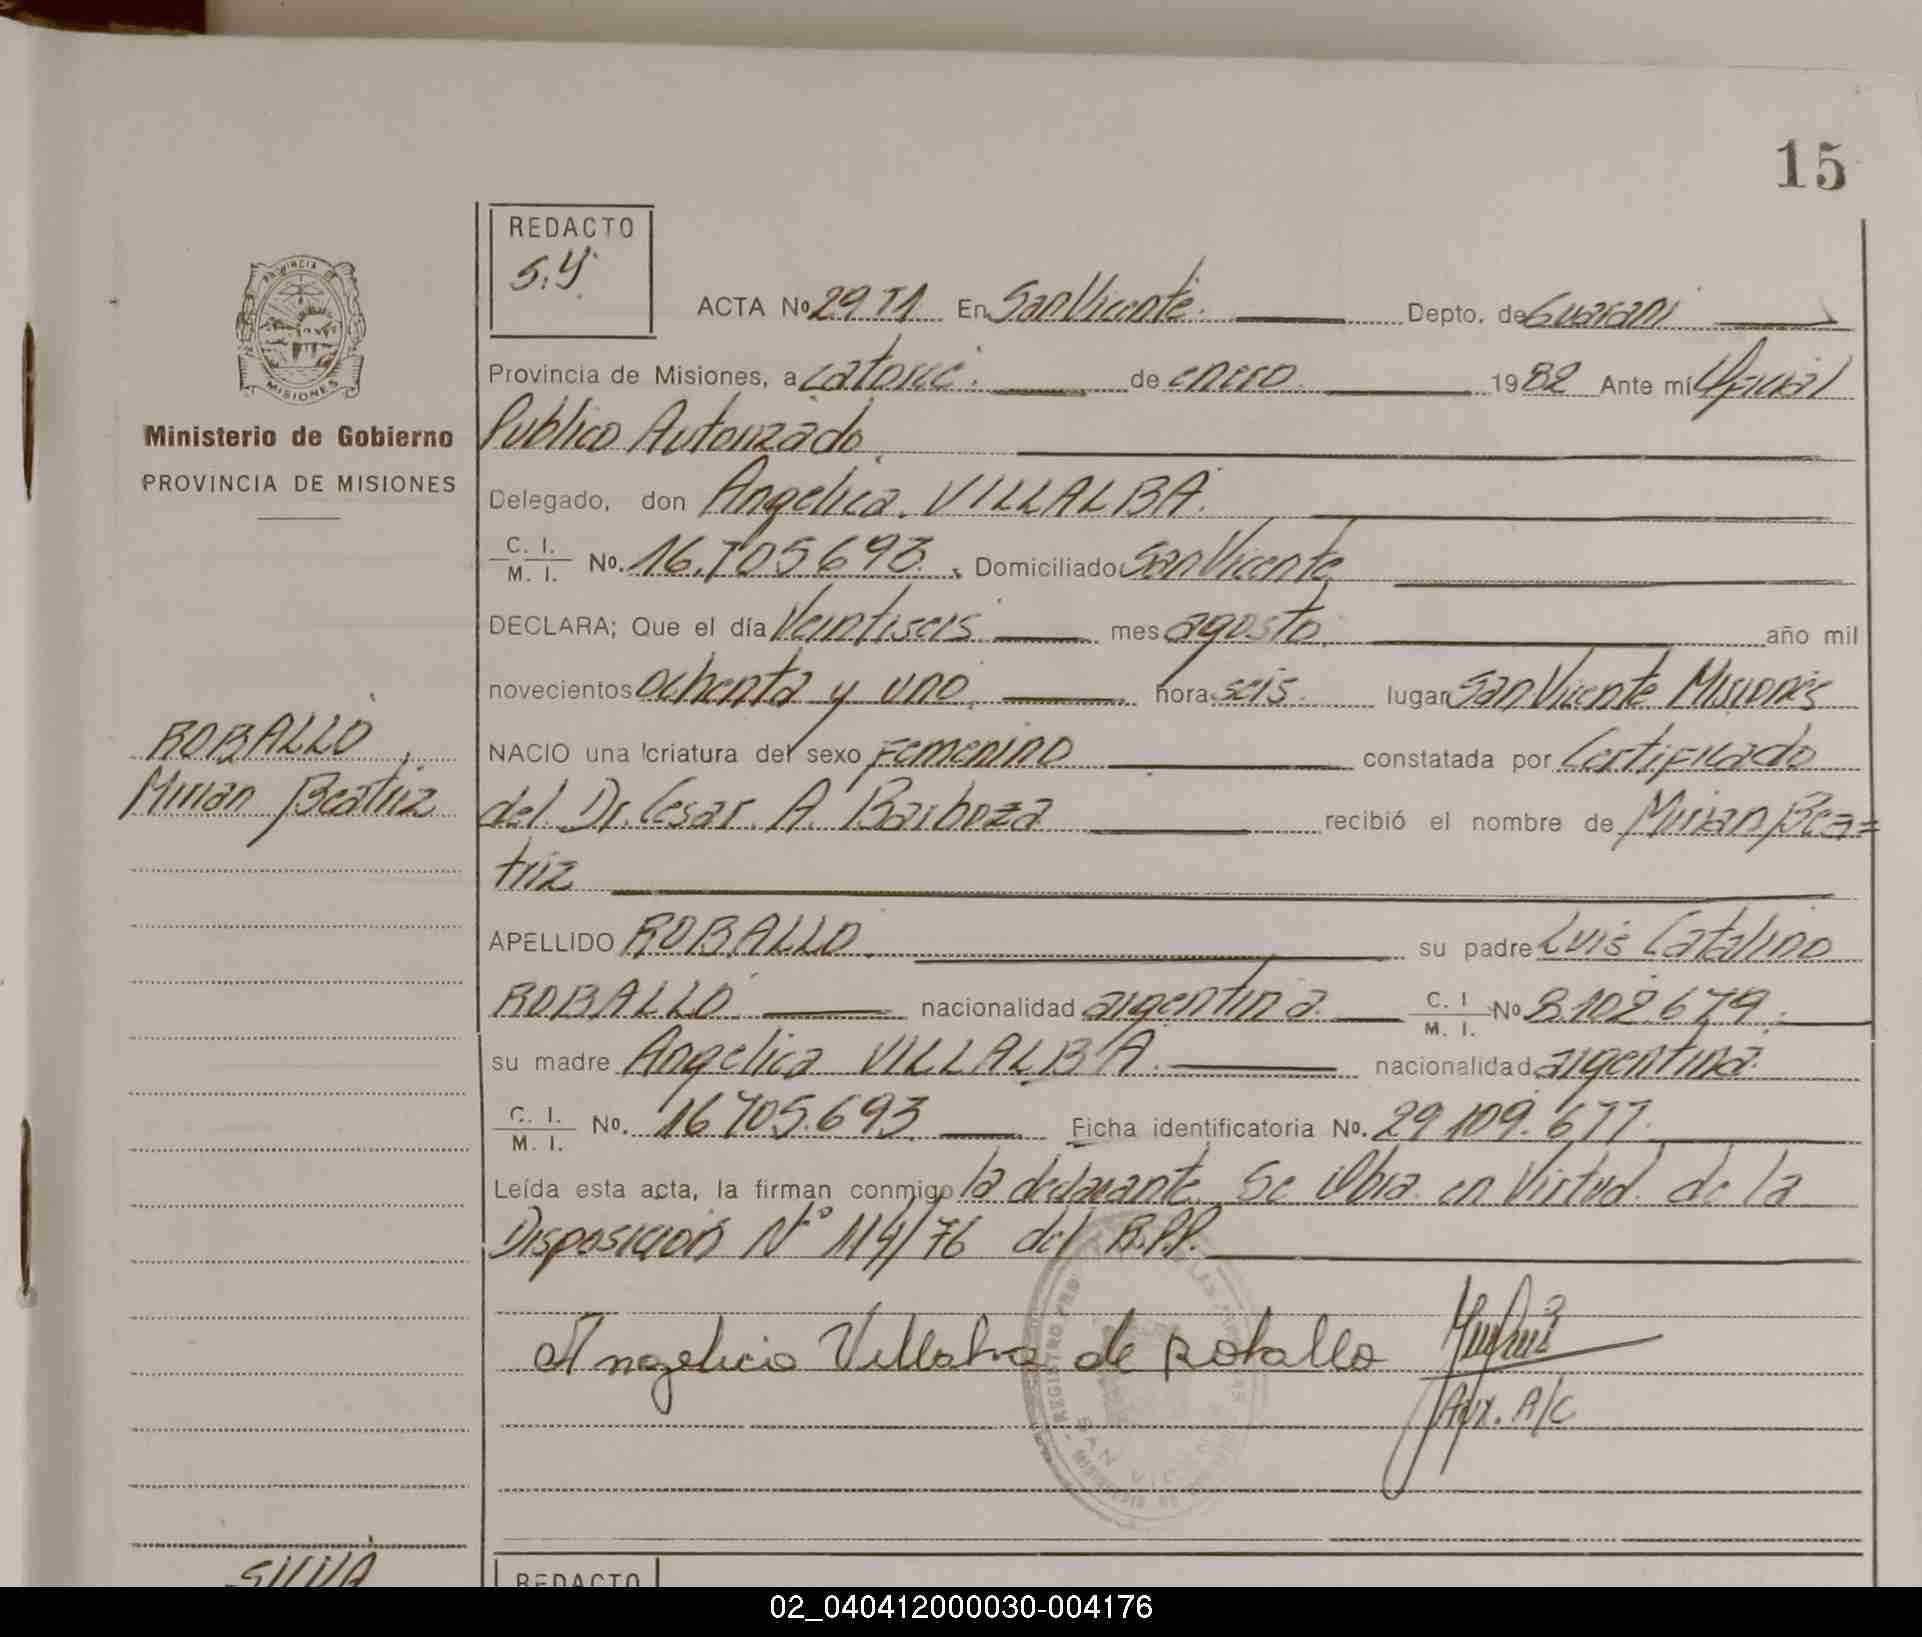 15
REDACTO
S.Y.
ACTA No 2971 En San Vicente. Depto. de Guarani
PROVINCIA DE
MISIONES
Provincia de Misiones, a catorce. de enero 1982 Ante mí Oficial
Ministerio de Gobierno
Publico Autorizado
PROVINCIA DE MISIONES
Delegado, don Angelica VILLALBA.
C. I.
M. I. No. 16.705693. Domiciliado San Vicente
DECLARA; Que el día Veintiseis mes agosto. año mil
novecientos ochenta y uno. hora seis. lugar San Vicente Misiones
ROBALLO,
NACIO una criatura del sexo Femenino constatada por Certificado
Mirian Beatriz
del Dr. Cesar A. Barboza recibió el nombre de Mirian Bea=
triz
APELLIDO ROBALLO. su padre Luis Catalino
ROBALLO nacionalidad argentina C. I
M. I. No 8.102.679.
su madre Angelica VILLALBA. nacionalidad argentina.
C. I.
M. I. No. 16705.693 Ficha identificatoria No. 29.109.677.
Leída esta acta, la firman conmigo la declarante. Se labra en Virtud de la
Disposicion N° 114/76 del R.P.P.
Angelica Villalba de Roballo
Aux. A/C
REGISTRO
SAN VI
SILVA
REDACTO
02_040412000030-004176